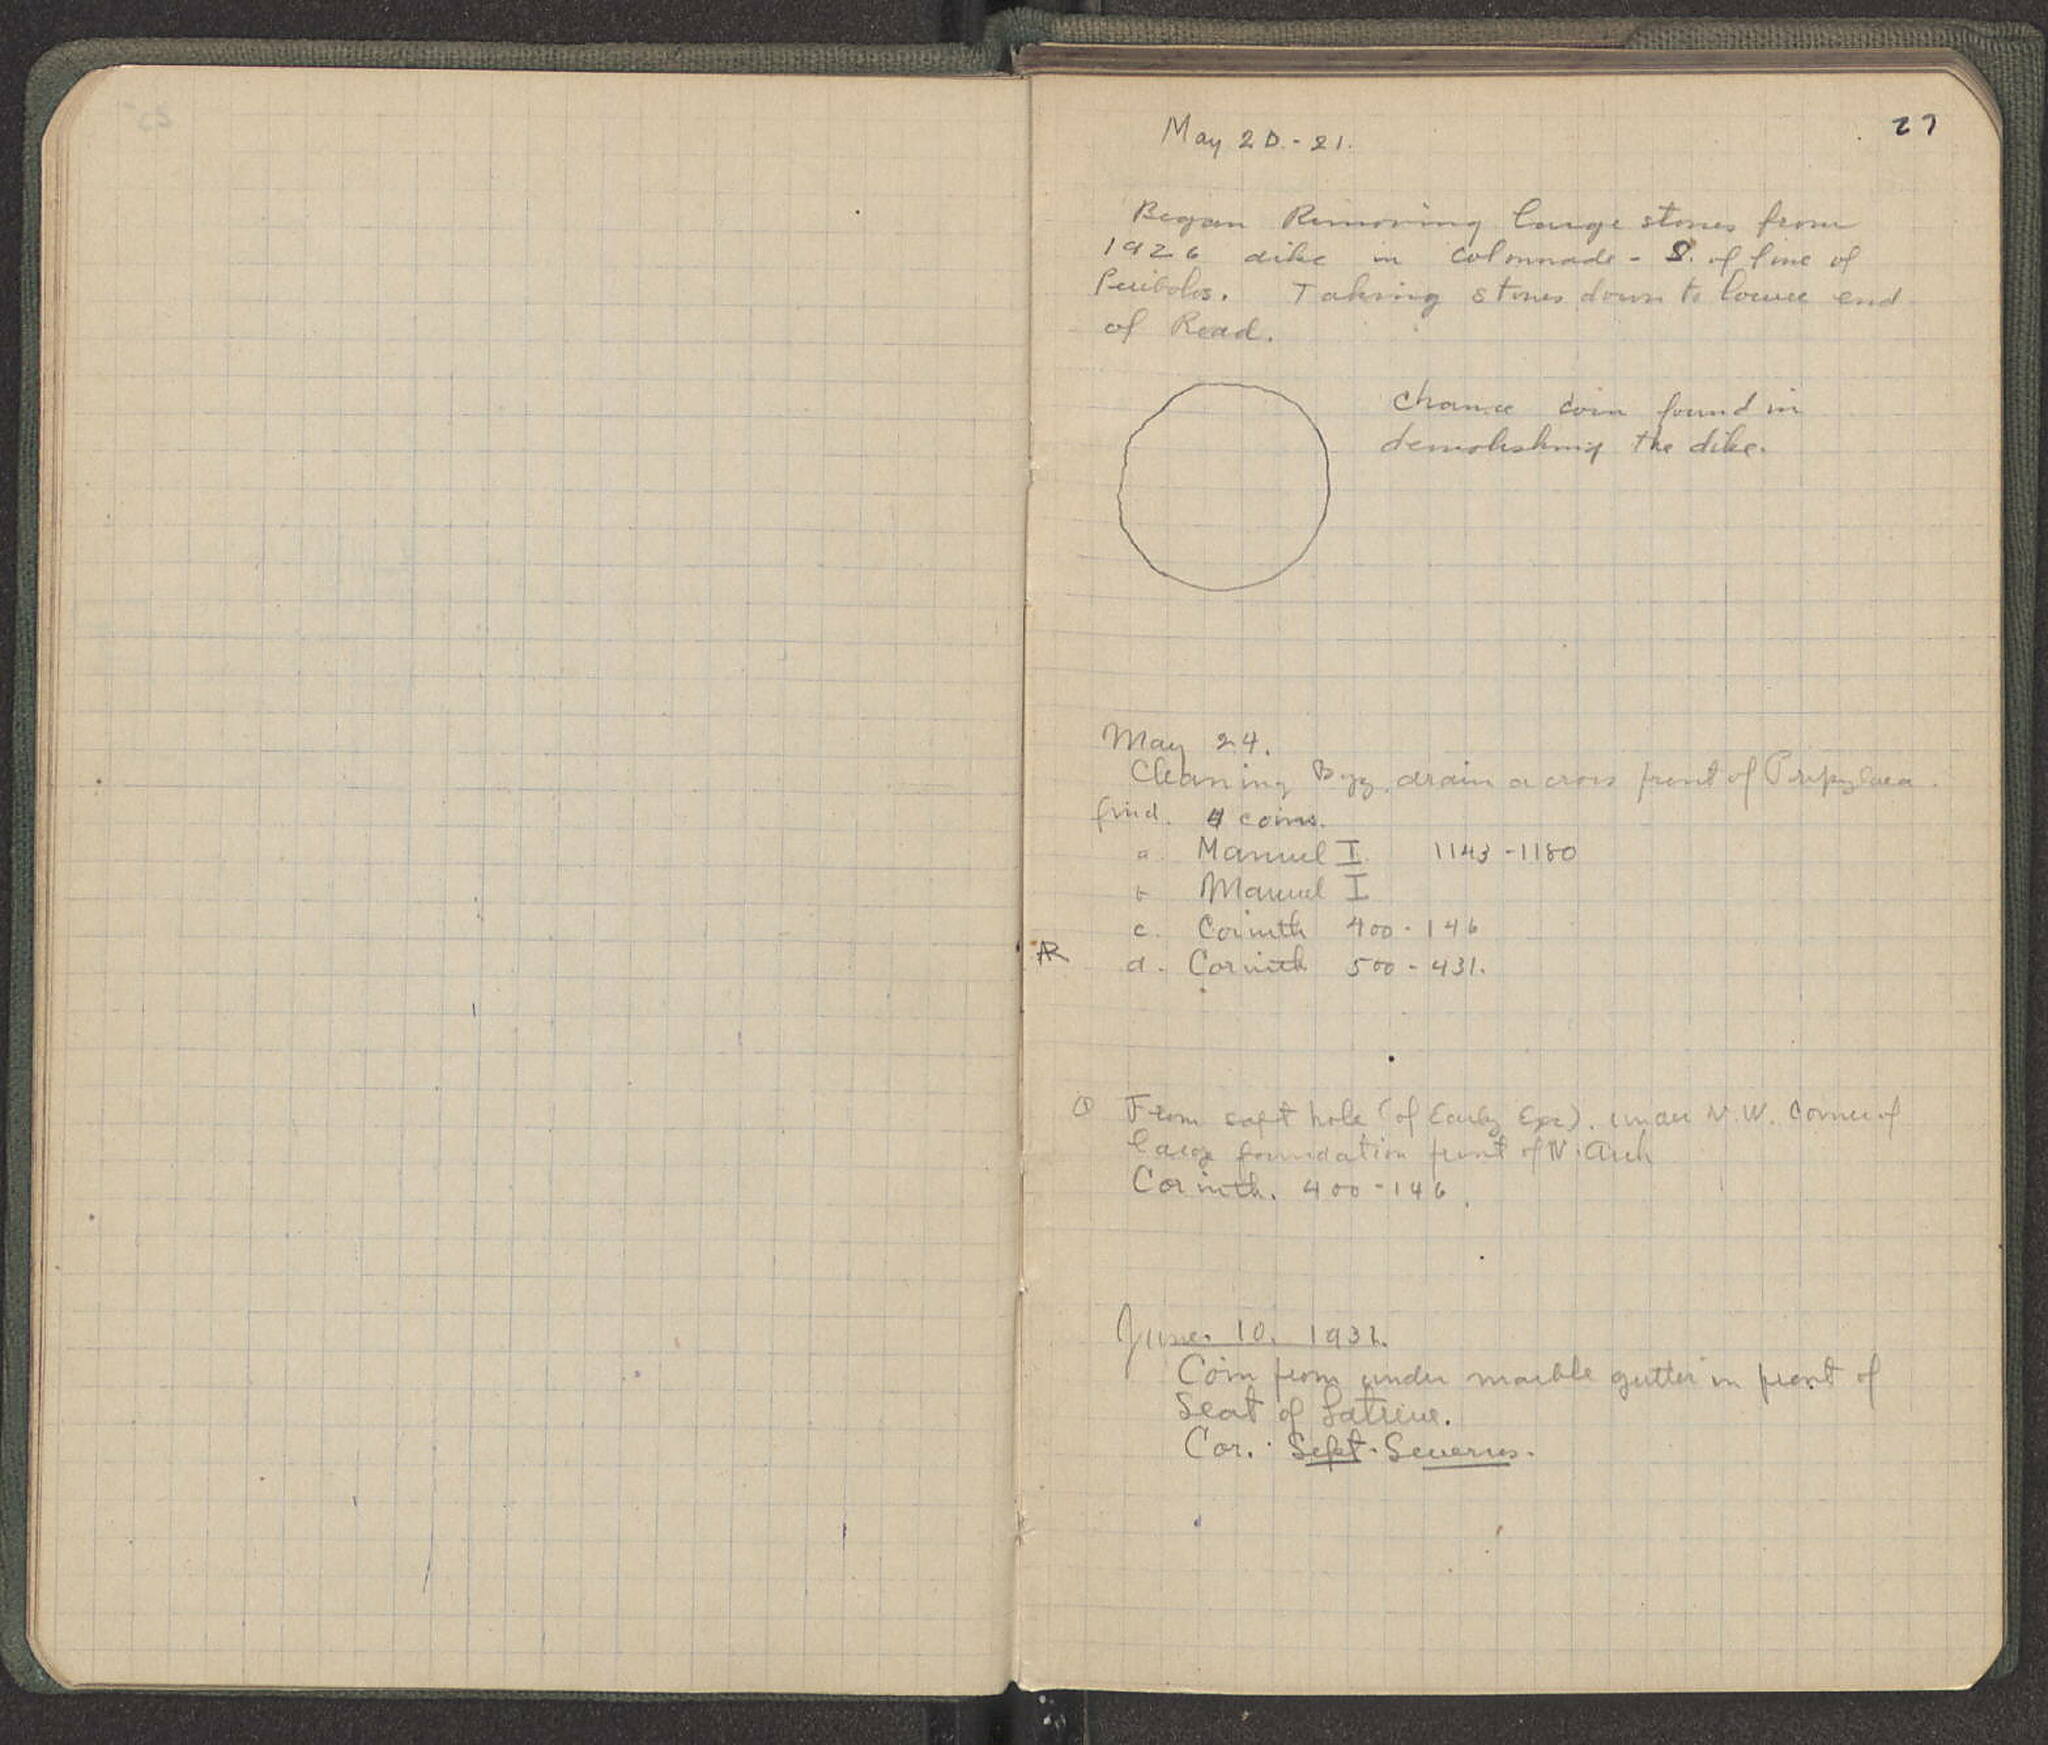 27
May 20.-21.
Began Removing large stones from
1926 dike in Colonnade - S. of line of
Peribolos. Taking stones down to lower end
of Road.
Chance coin found in
demolishing the dike.
May 24.
Cleaning Byz. drain across front of Propylaea.
find. 4 coins.
a. Manuel I. 1143-1180
b Manuel I
c. Corinth 400-146
AR d. Corinth 500-431.
From soft hole (of Early Exc). under N.W. Corner of
large foundation front of N. Arch
Corinth. 400-146.
June. 10. 1931.
Coin from under marble gutter in front of
Seat of Latrine.
Cor. Sept. Severus.